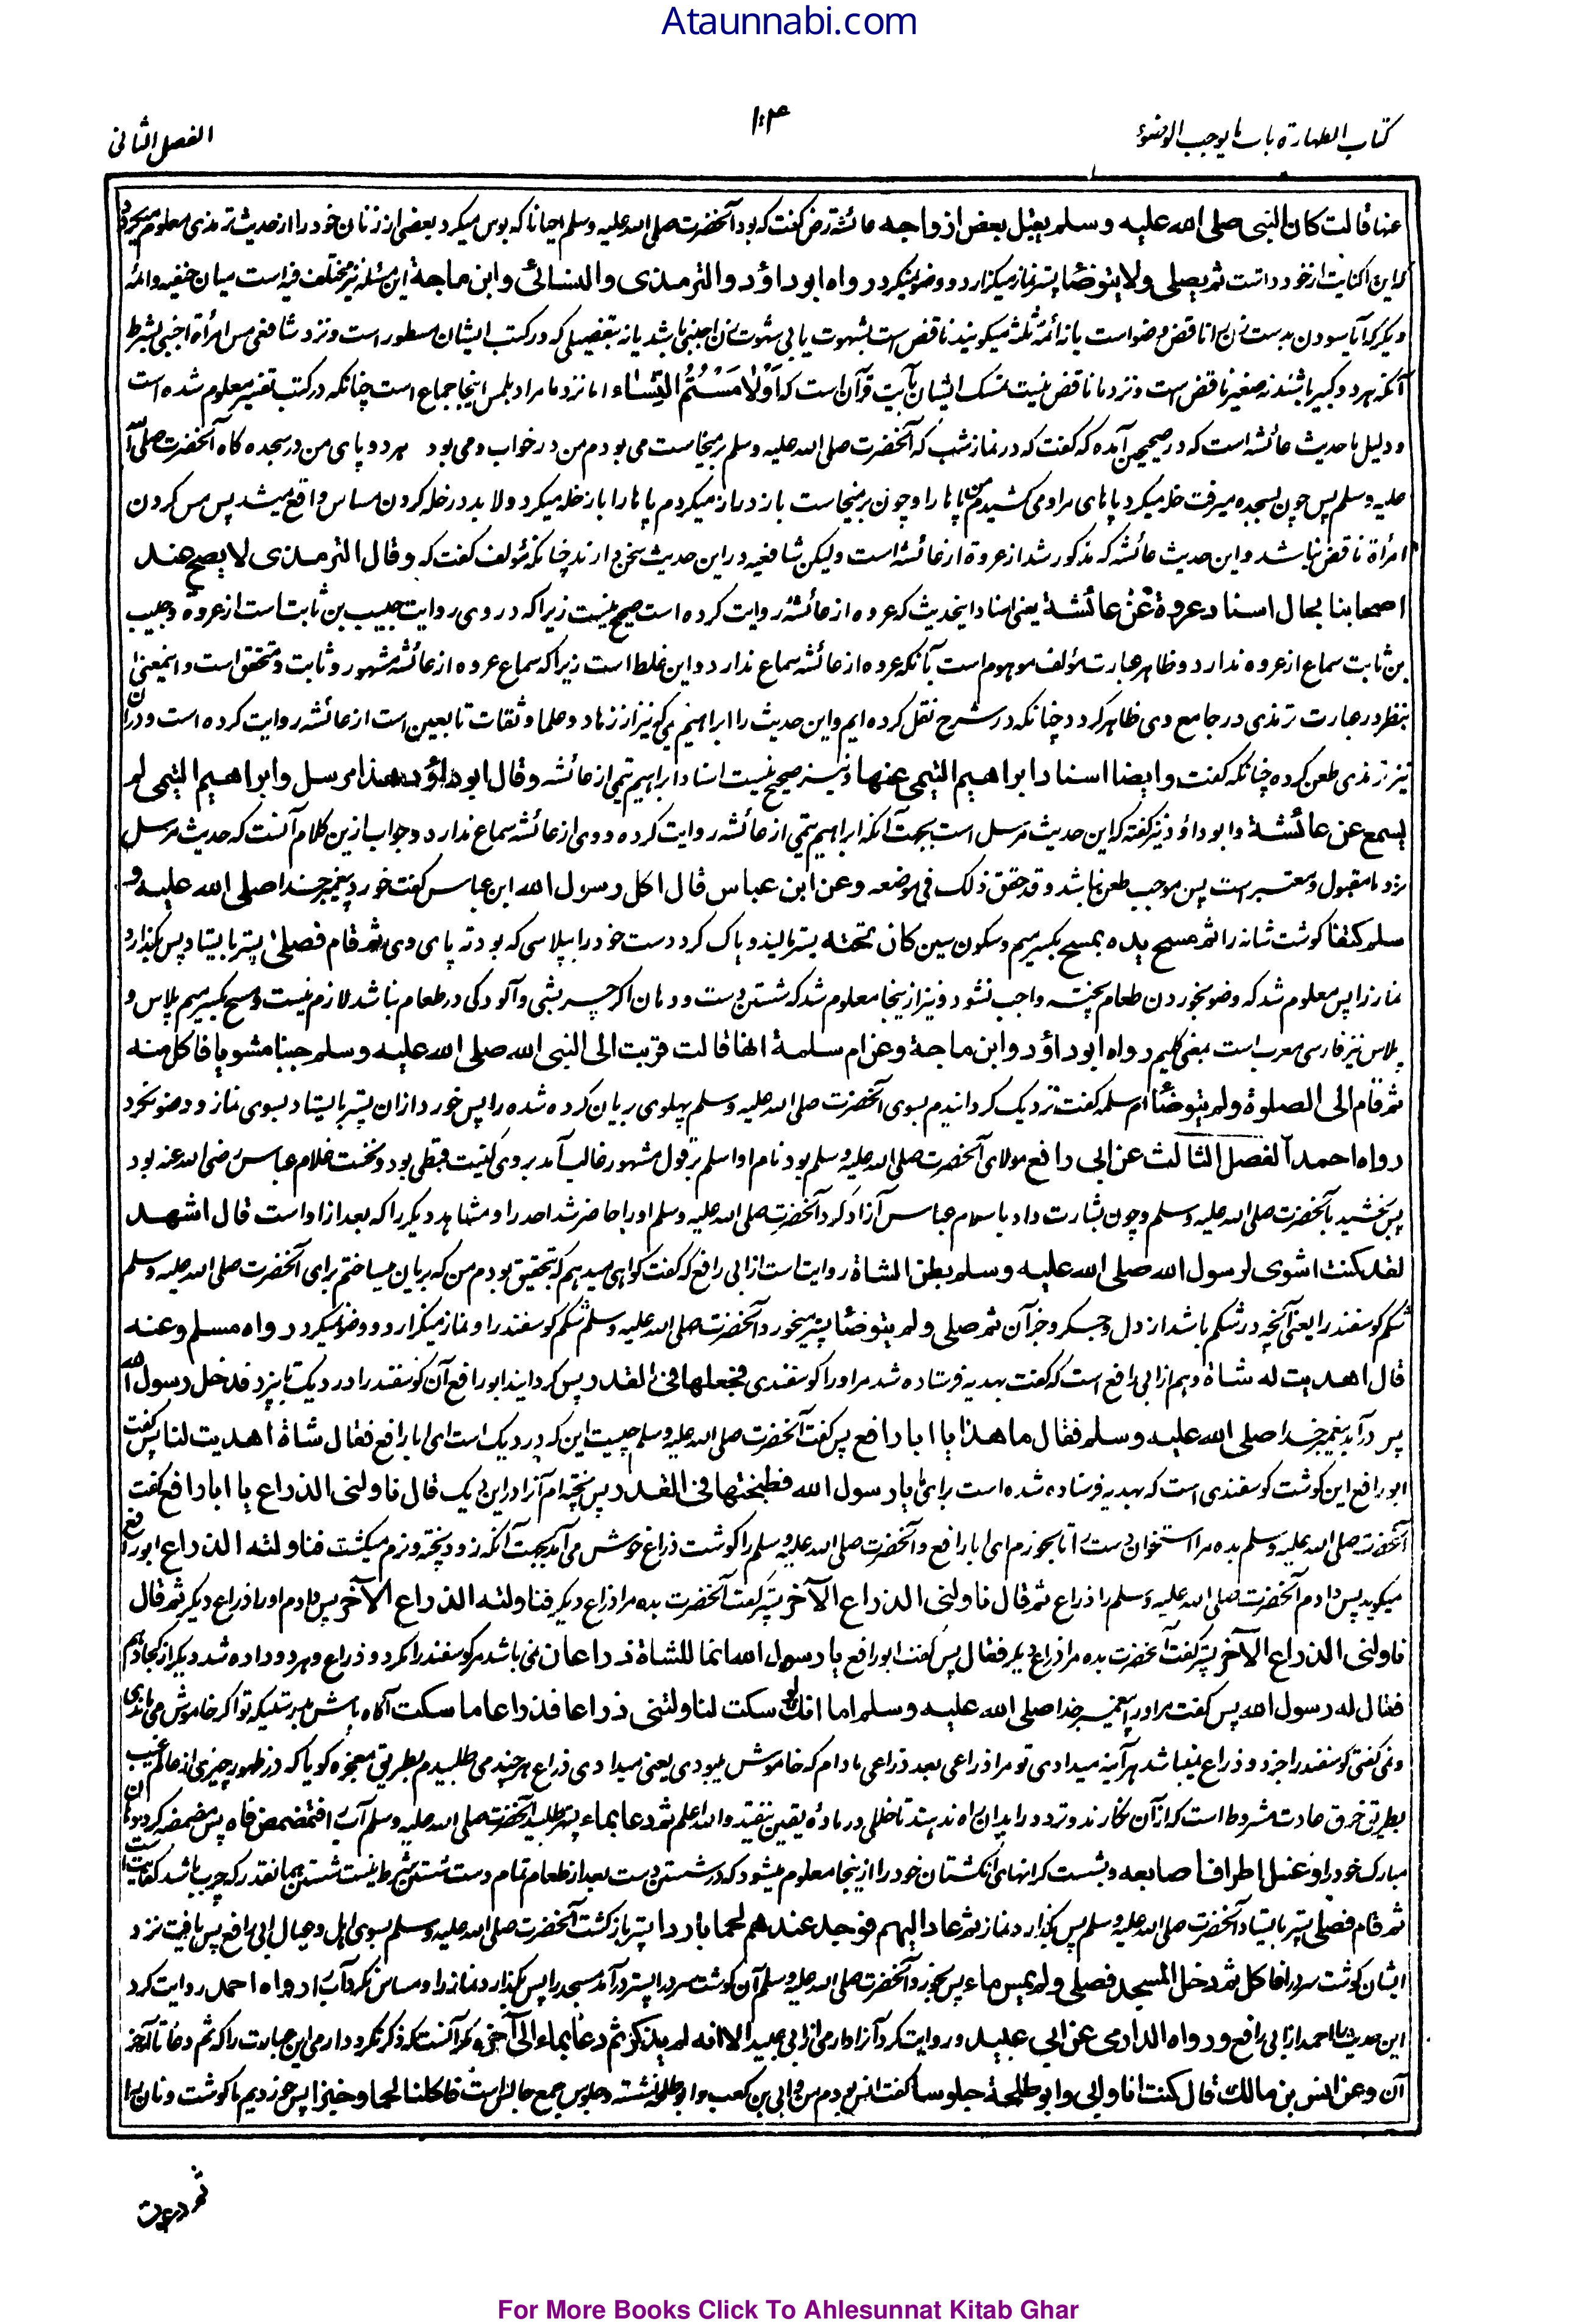 Ataunnabi.com
كتاب الطهارة باب ما يوجب الوضوء
۱۰۴
الفصل الثانى
عنها قالت كان النبى صلى الله عليه وسلم يقبل بعض ازواجه عائشة رض گفت كه بود آنحضرت صلى الله عليه وسلم احيانا كه بوس ميكرد بعضى از زنان خود را از حديث ترمذى معلوم ميگردد
كه اين كنايت از خود داشت ثم يصلى ولا يتوضأ پستر نماز ميگزارد و وضو نميكرد رواه ابو داؤد والترمذى والنسائى وابن ماجة اين مسئله نيز مختلف فيه است ميان حنفيه وائمه
ديگر كه آيا سودن بدست زن را ناقض وضو است يا نه ائمه ثلثه ميگويند ناقض است بشهوت يا بى شهوت زن اجنبى باشد يا نه بتفصيلى كه در كتب ايشان مسطور است ونزد شافعى مس امرأة اجنبى بشرط
آنكه هر دو كبير باشند نه صغير ناقض است ونزد ما ناقض نيست تمسك ايشان بآيت قرآن است كه اَوْلٰامَسْتُمُ النِّسَاء اما نزد ما مراد بلمس اينجا جماع است چنانكه در كتب تفسير معلوم شده است
ودليل ما حديث عائشه است كه در صحيحين آمده كه گفت كه در نماز شب كه آنحضرت صلى الله عليه وسلم برميخاست مى بودم من در خواب ومى بود هر دو پاى من در سجده گاه آنحضرت صلى الله
عليه وسلم پس چون بسجده ميرفت خله ميكرد پاهاى مرا ومى كشيدم من پاها را وچون برميخاست باز دراز ميكردم پاها را باز خله ميكرد ولا بد در خله كردن مساس واقع ميشد پس مس كردن
امرأة ناقض نباشد واين حديث عائشه كه مذكور شد از عروة از عائشه است وليكن شافعيه در اين حديث سخن دارند چنانكه مؤلف گفت كه وقال الترمذى لا يصح عند
اصحابنا بحال اسناد عروة عن عائشة يعنى اسناد اينحديث كه عروه از عائشه روايت كرده است صحيح نيست زيرا كه در وى روايت حبيب بن ثابت است از عروه وحبيب
بن ثابت سماع از عروه ندارد وظاهر عبارت مؤلف موهوم است بآنكه عروه از عائشه سماع ندارد واين غلط است زيرا كه سماع عروه از عائشه مشهور وثابت ومتحقق است واينمعنى
بنظر در عبارت ترمذى در جامع وى ظاهر گردد چنانكه در شرح نقل كرده ايم واين حديث را ابراهيم تيمى كه نيز از زهاد وعلما وثقات تابعين است از عائشه روايت كرده است ودران
نيز ترمذى طعن كرده چنانكه گفت وايضا اسناد ابراهيم التيمى عنها ونيز صحيح نيست اسناد ابراهيم تيمى از عائشه وقال ابو داؤد هذا مرسل وابراهيم التيمى لم
يسمع عن عائشة وابو داؤد نيز گفته كه اين حديث مرسل است بجهت آنكه ابراهيم تيمى از عائشه روايت كرده ووى از عائشه سماع ندارد وجواب ازين كلام آنست كه حديث مرسل
نزد ما مقبول ومعتبر است پس موجب طعن نباشد وقد حقق ذلك فى موضعه وعن ابن عباس قال اكل رسول الله ابن عباس گفت خورد پيغمبر خدا صلى الله عليه و
سلم كتفا گوشت شانه را ثم مسح يده بمسح بكسر ميم وسكون سين كان تحته پستر ماليد وپاك كرد دست خود را بپلاسى كه بود ته پاى وى ثم قام فصلى پستر بايستاد پس بگذارد
نماز را پس معلوم شد كه وضو بخوردن طعام پخته واجب نشود ونيز از ينجا معلوم شد كه شستن دست ودهان اگر چربشى وآلودگى در طعام نباشد لازم نيست ومسح بكسر ميم پلاس و
پلاس نيز فارسى معرب است بمعنى گليم رواه ابو داؤد وابن ماجة وعن ام سلمة انها قالت قربت الى النبى الله صلى الله عليه وسلم جنبا مشويا فاكل منه
ثم قام الى الصلوة ولم يتوضأ ام سلمه گفت نزديك گردانيدم بسوى آنحضرت صلى الله عليه وسلم پهلوى بريان كرده شده را پس خورد ازان پستر بايستاد بسوى نماز ووضو نكرد
رواه احمد الفصل الثالث عن ابى رافع مولاى آنحضرت صلى الله عليه وسلم بود نام او اسلم بر قول مشهور غالب آمد بر وى كنيت قبطى بود ونخست غلام عباس رضى الله عنه بود
پس بخشيد بآنحضرت صلى الله عليه وسلم وچون بشارت داد باسلام عباس آزاد كرد آنحضرت صلى الله عليه وسلم او را حاضر شد احد را ومشاهد ديگر را كه بعد از او است قال اشهد
لقد كنت اشوى لرسول الله صلى الله عليه وسلم بطن الشاة روايت است از ابى رافع كه گفت گواهى ميدهم كه بتحقيق بودم من كه بريان ميساختم براى آنحضرت صلى الله عليه وسلم
شكم گوسفند را يعنى آنچه در شكم باشد از دل وجگر وجز آن ثم صلى ولم يتوضأ پستر ميخورد آنحضرت صلى الله عليه وسلم شكم گوسفند را ونماز ميگزارد ووضو نميكرد رواه مسلم وعنه
قال اهديت له شاة وهم از ابى رافع است كه گفت بهديه فرستاده شد مر او را گوسفندى فجعلها فى القدر پس گردانيد ابو رافع آن گوسفند را در ديگ تا بپزد فدخل رسول الله
پس درآمد پيغمبر خدا صلى الله عليه وسلم فقال ما هذا يا ابا رافع پس گفت آنحضرت صلى الله عليه وسلم چيست اين كه در ديگ است اى ابا رافع فقال شاة اهديت لنا پس گفت
ابو رافع اين گوشت گوسفندى است كه بهديه فرستاده شده است براى ما يا رسول الله فطبختها فى القدر پس پخته ام آنرا در اين ديگ قال ناولنى الذراع يا ابا رافع گفت
آنحضرت صلى الله عليه وسلم بده مرا استخوان دست را تا بخورم اى ابا رافع وآنحضرت صلى الله عليه وسلم را گوشت ذراع خوش مى آمد بجهت آنكه زود پخته ونرم ميگشت فناولته الذراع ابو رافع
ميگويد پس دادم آنحضرت صلى الله عليه وسلم را ذراع ثم قال ناولنى الذراع الآخر پستر گفت آنحضرت بده مرا ذراع ديگر فناولته الذراع الآخر پس دادم او را ذراع ديگر ثم قال
ناولنى الذراع الآخر پستر گفت آنحضرت بده مرا ذراع ديگر فقال پس گفت ابو رافع يا رسول الله انما للشاة ذراعان نمى باشد مر گوسفند را مگر دو ذراع وهر دو داده شد ديگر از كجا دهم
فقال له رسول الله پس گفت مر او را پيغمبر خدا صلى الله عليه وسلم اما انك لو سكت لناولتنى ذراعا فذراعا ما سكت آگاه باش بدرستيكه تو اگر خاموش مى ماندى
ونمى گفتى گوسفند را جز دو ذراع نباشد هر آينه ميدادى تو مرا ذراعى بعد ذراعى مادام كه خاموش ميبودى يعنى ميدادى ذراع هر چند مى طلبيدم بطريق معجزه گويا كه در ظهور چيزى از عالم غيب
بطريق خرق عادت مشروط است كه از آن نگارند وتردد را بدان راه ندهند تا خللى در ماده يقين نيفتد والله اعلم ثم دعا بماء پستر طلبيد آنحضرت صلى الله عليه وسلم آب را فتمضمض فاه پس مضمضه كرد دهان
مبارك خود را وغسل اطراف اصابعه وبشست كرانهاى انگشتان خود را از ينجا معلوم ميشود كه در شستن دست بعد از طعام تمام دست شستن شرط نيست شستن همانقدر كه چرب باشد كفايت است
ثم قام فصلى پستر بايستاد آنحضرت صلى الله عليه وسلم پس بگذارد نماز ثم عاد اليهم فوجد عندهم لحما باردا پستر بازگشت آنحضرت صلى الله عليه وسلم بسوى اهل وعيال ابى رافع پس يافت نزد
ايشان گوشت سرد را فاكل ثم دخل المسجد فصلى ولم يمس ماء پس بخورد آنحضرت صلى الله عليه وسلم آن گوشت سرد را پستر درآمد مسجد را پس بگذارد نماز را ومساس نكرد آب را رواه احمد روايت كرد
اين حديث را احمد از ابى رافع ورواه الدارمى عن ابى عبيد وروايت كرد آنرا دارمى از ابى عبيد الا انه لم يذكر ثم دعا بماء الى آخره مگر آنست كه ذكر نكرد دارمى اين عبارت را كه ثم دعا تا آخر
آن وعن انس بن مالك قال كنت انا وابى وابو طلحة جلوسا گفت انس بودم من وابى بن كعب وابو طلحه نشسته وجلوس جمع جالس است فاكلنا لحما وخبزا پس خورديم ما گوشت ونان را
ثم دعوت
For More Books Click To Ahlesunnat Kitab Ghar